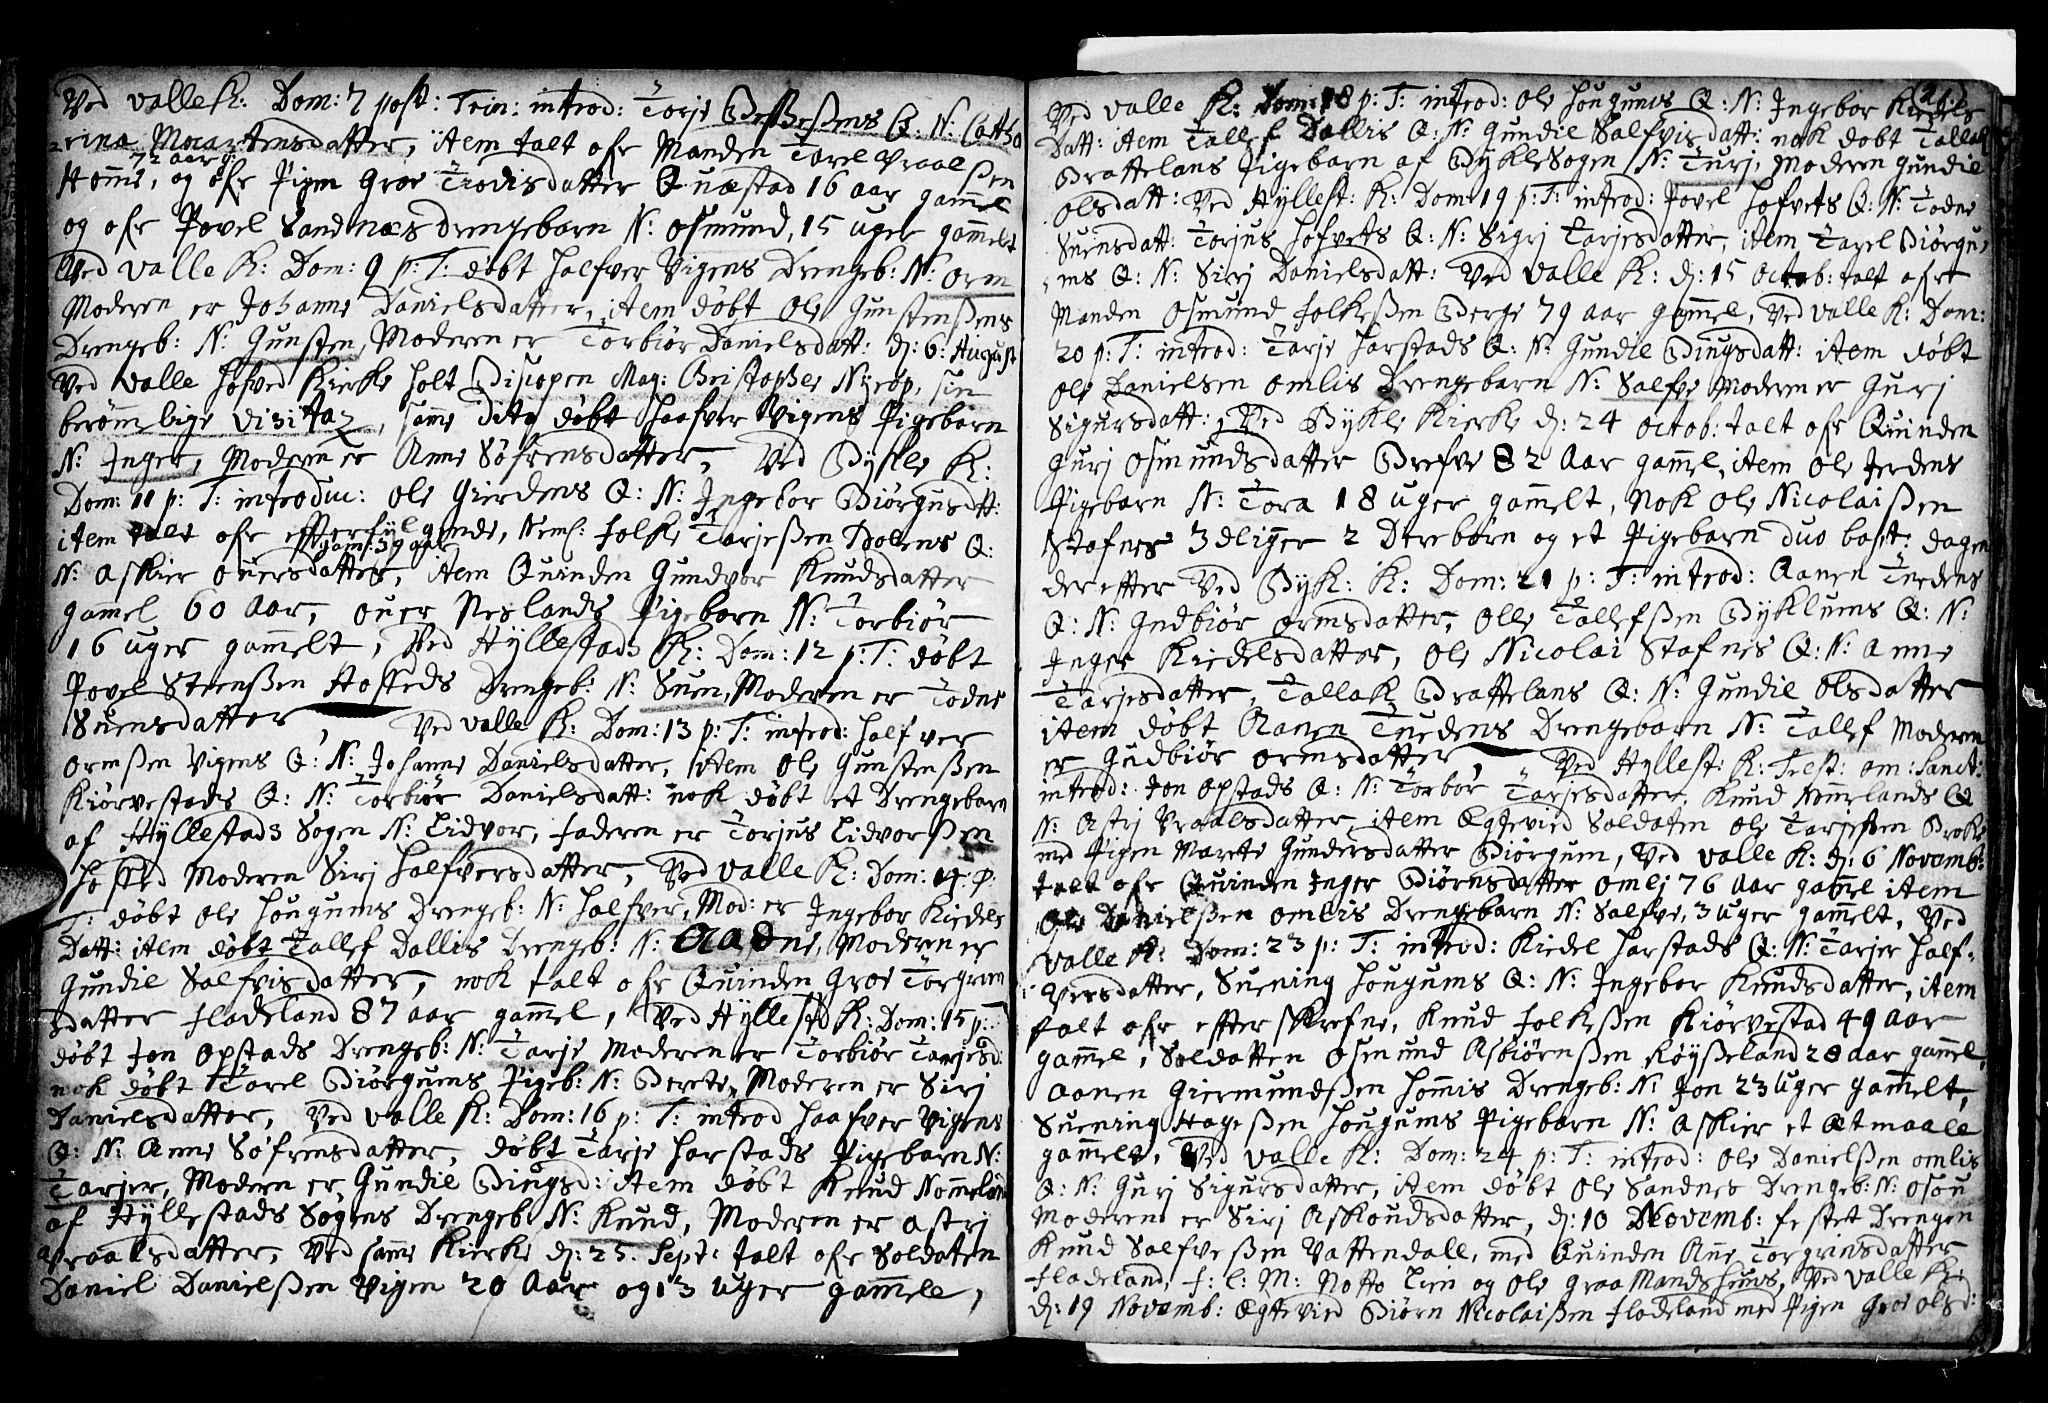 Ved valle K: Dom: 7 post: Trin: introd: Torje Q: N: Catha
rina Maartensdatter, item talt ofr Manden Tarel Vraalßen
72 aar g:
Homme, og ofr Pigen Groe Trodisdatter Quæstad 16 aar gammel
og ofr Povel Sandnæs drengebarn N: Osmund, 15 uger gammelt
Ved Valle K: Dom: 9 p: T: døbt Halfver Vigens Drengeb: N: Orm
Moderen er Johanne Danielsdatter, item døbt Ole Gunstenßens
Drengeb: N: Gunsten, Moderen er Torbiør Danielsdatt: d: 6: August
Ved Valle Hofved Kirke holt Bispen Mag: Christopher Nyrop, sin
berømmelige Visitaz, samme dito døbt Haafver Vigens Pigebarn
N: Inger, Moderen er Anne Søfrensdatter, Ved Bykle K:
Dom: 11 p: T: introduc: Ole Gierdens Q: N: Ingebor Biørgusdtt:
item talt ofr effterfylgende, Neml: Folke Tarjeßen Q:
gam: 39 aar
N: Askier Ouersdatter, item Quinden Gundvor Knudsdatter
gammel 60 Aar, ouer Neslands Pigebarn N: Torbiør
16 uger gammelt, Ved Hyllestads K: Dom: 12 p: T: døbt
Povel Steenßen Hoffeds Drengeb: N: Suen, Moderen er Todne
Suensdatter, Ved Valle K: Dom: 13 p: T: introd: Halfver
Ormßen Vigens Q: N: Johanne Danielsdatter, item Ole Gunstenßen
Kiørvestads Q: N: Torbiør Danielsdatt: nok døbt et Drengebarn
af Hyllestads Sogen N: Tidvor, faderen er Torjus Tidvorßen
Hoffed Moderen Sirj Halfversdatter, Ved Valle K: Dom: 14: p:
T: døbt Ole Hougums Drengeb: N: Halfver, Mod: er Ingebor Kiedels
Datt: item døbt Tallef Dallis Drengeb: N: Aadne, Moderen er
Gundle Salfvisdatter, nok talt ofr Quinden Groe Torgrims
datter Fladeland 87 aar gammel, Ved Hyllestd K: Dom: 15 p:
døbt Jon Opstads Drengeb: N: Tarje Moderen er Torbiør Tarjesd:
nok døbt Tarel Biørguens Pigeb: N: Berete, Moderen er Sirj
Danielsdatter, Ved Valle K: Dom: 16 p: T: introd Haafver Vigens
Q: N: Anne Søfrensdatter, døbt Tarje Harstads Pigebarn N:
Tarjer, Modern er Gundle Bingsd: item døbt Knud Nommeland
af Hyllestads Sogens Drengeb: N: Knud, Moderen er Astrj
Vraalsdatter, Ved samme Kirke d: 25. Sept: talt ofr Soldaten
Daniel Danielßen Vigen 20 Aar og 13 uger gammele,
Ved Valle K: Dom: 18 p: T: introd: Ole Hougums Q: N: Ingebor Kiedels
Datt: item Tallef Dallis Q: N: Gundle Salfvisdatt: nok døbt Tallak
Brattelans Pigebarn af Bykle Sogen N: Turj, Moderen Gundle
Olsdatt: Ved Hyllest: K: Dom: 19 p: T: introd: Povel Hofvets Q: N: Todne
Suensdatt: Torjus Hofvets Q: N: Sigrj Tarjesdatter, item Tarel Biørgu,
ens Q: N: Sirj Danielsdatt: Ved Valle K: d: 15 Octob: talt ofr
Manden Osmund Folkeßen Berge 79 aar gammel, Ved Valle K: Dom:
20 p: T: introd: Tarje Harstads Q: N: Gundle Bingsdatt: item døbt
Ole Danielsen Omlis Drengebarn N: Salfve Moderen er Gurj
Sigursdatt:, Ved Bykle Kierke d: 24 Octob: talt ofr Quinden
Gurj Osmundsdatter Brefve 82 Aar gammel, item Ole Jerdens
Pigebarn N: Tora 18 uger gammelt, Nok Ole Nicolaißen
Stafnes 3dliger 2 Drebørn og et Pigebarn duo bapt: dagen
der effter Ved Byk: K: Dom: 21 p: T: introd: Aanen Tuedens
Q: N: Gudbiør Ormsdatter, Olle Tallefßen Byklums Q: N:
Inger Kiedelsdatter, Ole Nicolai Stafnes Q: N: Anne
Tarjesdatter, Tallak Brattelans Q: N: Gundle Olsdatter
item døbt Aanen Tuedens Drengebarn N: Tallef Moderen
er Gudbiør Ormsdatter, Ved Hyllest: K: Fest: om: Sanct:
introd: Jon Opstads Q: N: Torbør Tarjesdatter, Knud Nommelands Q
N: Astrj Vraalsdatter, item Egtevied Soldaten Ole Tarjeßen Broke
med Pigen Marete Gundersdatter Biørgum, Ved Valle K: d: 6 Novemb:
talt ofr Quinden Inger Biørnsdatter Omlj 76 Aar gammel item
Ole Danielßen Omlis Drengebarn N: Salfve, 3 uger gammelt, Ved
Valle K: Dom: 23 p: T: introd: Kiedel Harstads Q: N: Tarjer Half-
versdatter, Suening Hougums Q: N: Ingebor Knudsdatter, item
talt ofr effterskrefne, Knud Folkeßen Kiørvestad 49 Aar
gammel, Soldatten Osmund Asbiørnßen Røyßeland 28 aar gammel,
Aanen Giermundßen Hommis Drengeb: N: Jon 23 uger gammelt,
Suening Hageßen Hougums Pigebarn N: Askier et Ætmaale
gammelt, Ved Valle K: Dom: 24 p: T: introd: Ole Danielßen Omlis
Q: N: Gurj Sigursdatter, item døbt Ole Sandnes Drengeb: N: Osou
Moderen er Sirj Askoudsdatter, d: 10 Novemb: festet Drengen
Knud Salfveßen Vattendall, med Quinden Ane Torgrinsdatter
Fladeland, f: l: M: Notto Tiein og Ole Graa Mands Heuvs, Ved Valle K:
d: 19 Novemb: Egtevied Biørn Nicolaißen Fladeland med Pigen Groe Olsd: